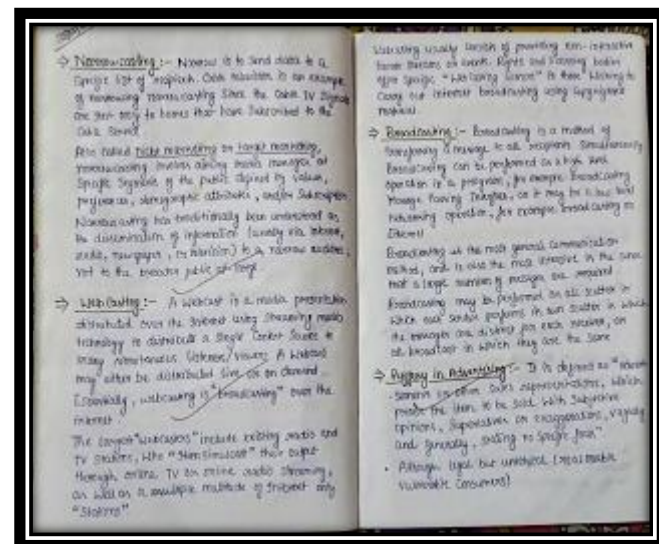 → Narrowcasting :- Narrow is to send data to a
specific list of recipient. Cable television is an example
of narrowing narrowcasting since the Cable TV signals
are sent only to homes that have subscribed to the
Cable service.
Also called niche marketing or target marketing,
narrowcasting involves aiming media messages at
specific segments of the public defined by values,
preferences, demographic attributes, and/or subscription
Narrowcasting has traditionally been understood as
the dissemination of information (usually via internet,
radio, newspaper, or television) to a narrow audience,
not to the broader public at large
→ Webcasting :- A webcast is a media presentation
distributed over the Internet using streaming media
technology to distribute a single content source to
many simultaneous listeners/viewers. A webcast
may either be distributed live or on demand.
Essentially, webcasting is "broadcasting" over the
internet
The largest "webcasters" include existing radio and
TV stations, who "simulcast" their output
through online TV or online radio streaming,
as well as a multiple multitude of Internet only
"stations"
Webcasting usually consists of providing non-interactive
linear streams or events. Rights and licensing bodies
offer specific "webcasting licences" to those wishing to
carry out internet broadcasting using copyrighted
material.
→ Broadcasting :- Broadcasting is a method of
transferring a message to all recipients simultaneously
Broadcasting can be performed as a high level
operation in a program, for example Broadcasting
Message Passing Interface, or it may be a low level
networking operation, for example broadcasting on
Ethernet
Broadcasting is the most general communication
method, and is also the most intensive in the sense
that a large number of messages are required
Broadcasting may be performed as all scatter in
which each sender performs its own scatter in which
the messages are distinct for each receiver, or
all broadcast in which they are the same
→ Puffery in Advertising :- It is defined as
or other sales representations, which
praise the item to be sold with subjective
opinions, superlatives or exaggerations, vaguely
and generally, stating no specific facts"
• Although legal but unethical
vulnerable consumers)